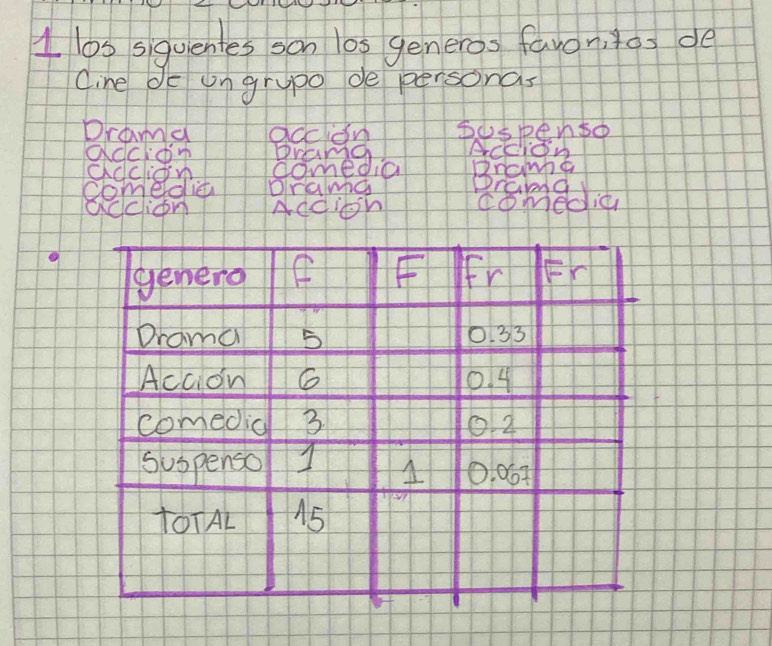 1 los siguientes son los generos favoritos de
Cine de un grupo de personas
Drama acción Suspenso
acción Drama Acción
acción comedia Drama
comedia Drama Drama
acción Acción comedia
genero f F Fr Fr
Drama 5 0.33
Acción 6 0.4
comedia 3 0.2
Suspenso 1 1 0.067
TOTAL 15